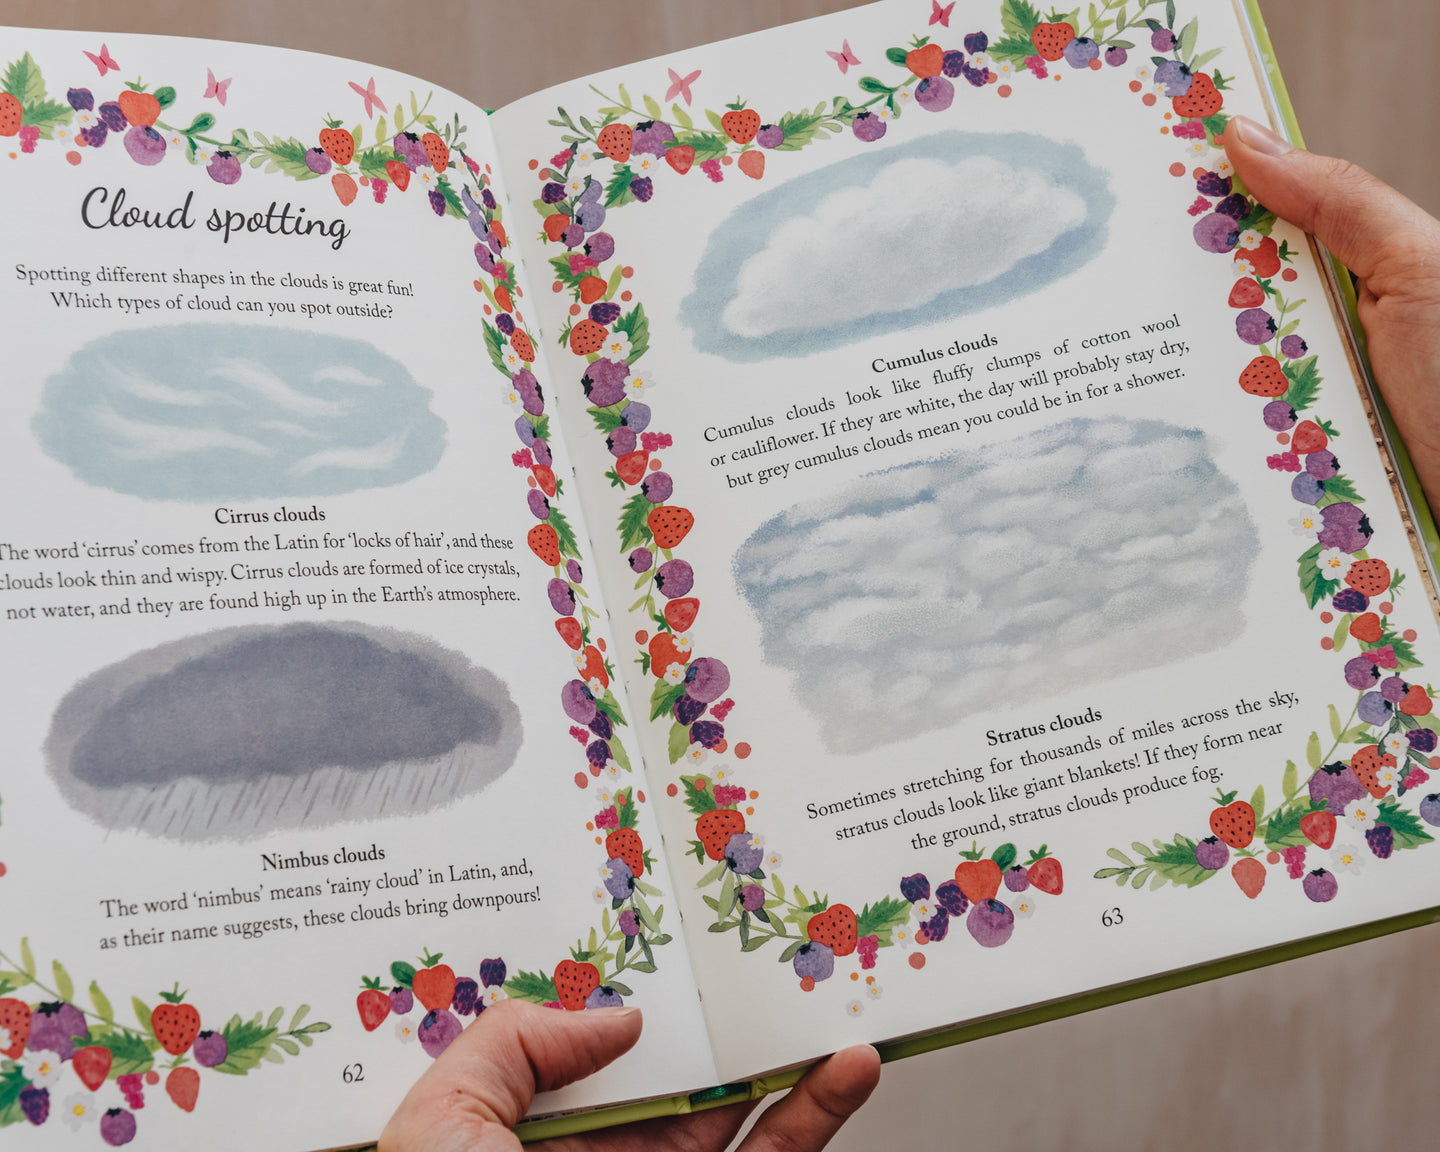 Cloud spotting
Spotting different shapes in the clouds is great fun!
Which types of cloud can you spot outside?
Cirrus clouds
The word ‘cirrus’ comes from the Latin for ‘locks of hair’, and these
clouds look thin and wispy. Cirrus clouds are formed of ice crystals,
not water, and they are found high up in the Earth’s atmosphere.
Nimbus clouds
The word ‘nimbus’ means ‘rainy cloud’ in Latin, and,
as their name suggests, these clouds bring downpours!
62
Cumulus clouds
Cumulus clouds look like fluffy clumps of cotton wool
or cauliflower. If they are white, the day will probably stay dry,
but grey cumulus clouds mean you could be in for a shower.
Stratus clouds
Sometimes stretching for thousands of miles across the sky,
stratus clouds look like giant blankets! If they form near
the ground, stratus clouds produce fog.
63